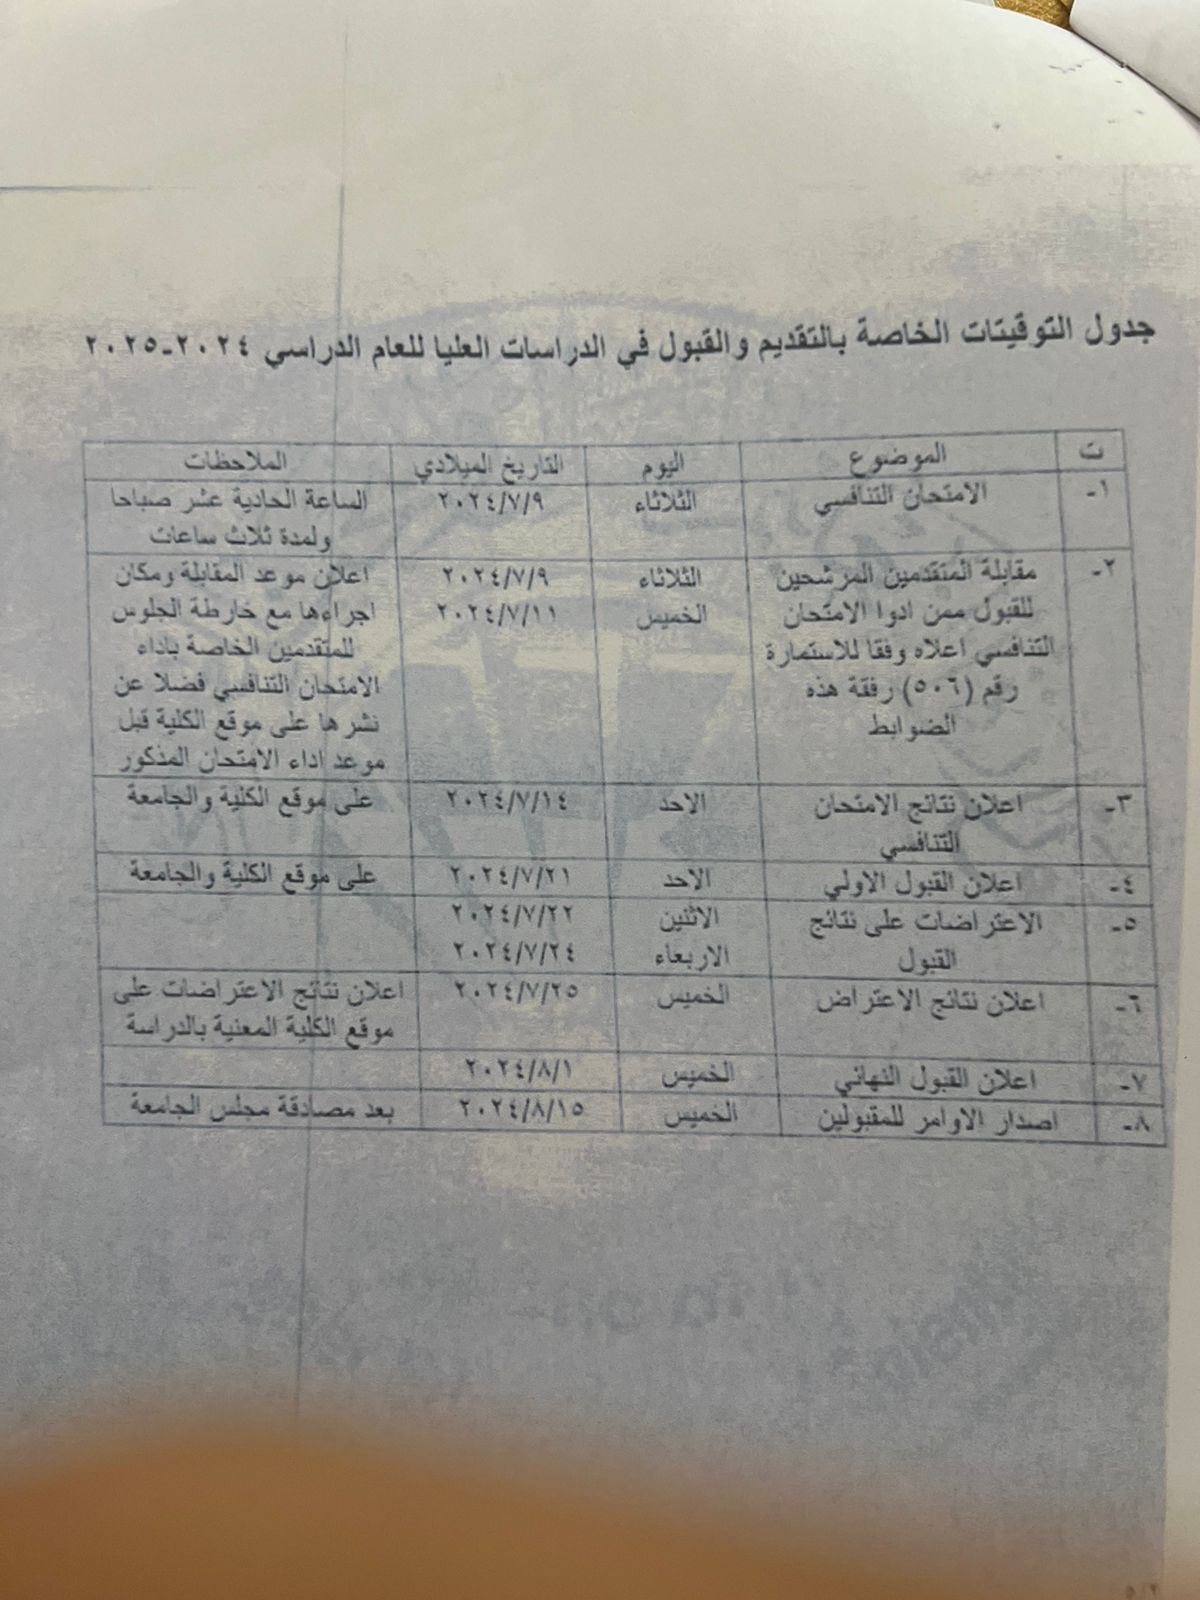 جدول التوقيتات الخاصة بالتقديم والقبول في الدراسات العليا للعام الدراسي ٢٠٢٤-٢٠٢٥
ت الموضوع اليوم التاريخ الميلادي الملاحظات
١- الامتحان التنافسي الثلاثاء ٢٠٢٤/٧/٩ الساعة الحادية عشر صباحا
ولمدة ثلاث ساعات
٢- مقابلة المتقدمين المرشحين الثلاثاء ٢٠٢٤/٧/٩ اعلان موعد المقابلة ومكان
للقبول ممن ادوا الامتحان الخميس ٢٠٢٤/٧/١١ اجراءها مع خارطة الجلوس
التنافسي اعلاه وفقا للاستمارة للمتقدمين الخاصة باداء
رقم (٥٠٦) رفقة هذه الامتحان التنافسي فضلا عن
الضوابط نشرها على موقع الكلية قبل
موعد اداء الامتحان المذكور
٣- اعلان نتائج الامتحان الاحد ٢٠٢٤/٧/١٤ على موقع الكلية والجامعة
التنافسي
٤- اعلان القبول الاولي الاحد ٢٠٢٤/٧/٢١ على موقع الكلية والجامعة
٥- الاعتراضات على نتائج الاثنين ٢٠٢٤/٧/٢٢
القبول الاربعاء ٢٠٢٤/٧/٢٤
٦- اعلان نتائج الاعتراض الخميس ٢٠٢٤/٧/٢٥ اعلان نتائج الاعتراضات على
موقع الكلية المعنية بالدراسة
٧- اعلان القبول النهائي الخميس ٢٠٢٤/٨/١
٨- اصدار الاوامر للمقبولين الخميس ٢٠٢٤/٨/١٥ بعد مصادقة مجلس الجامعة